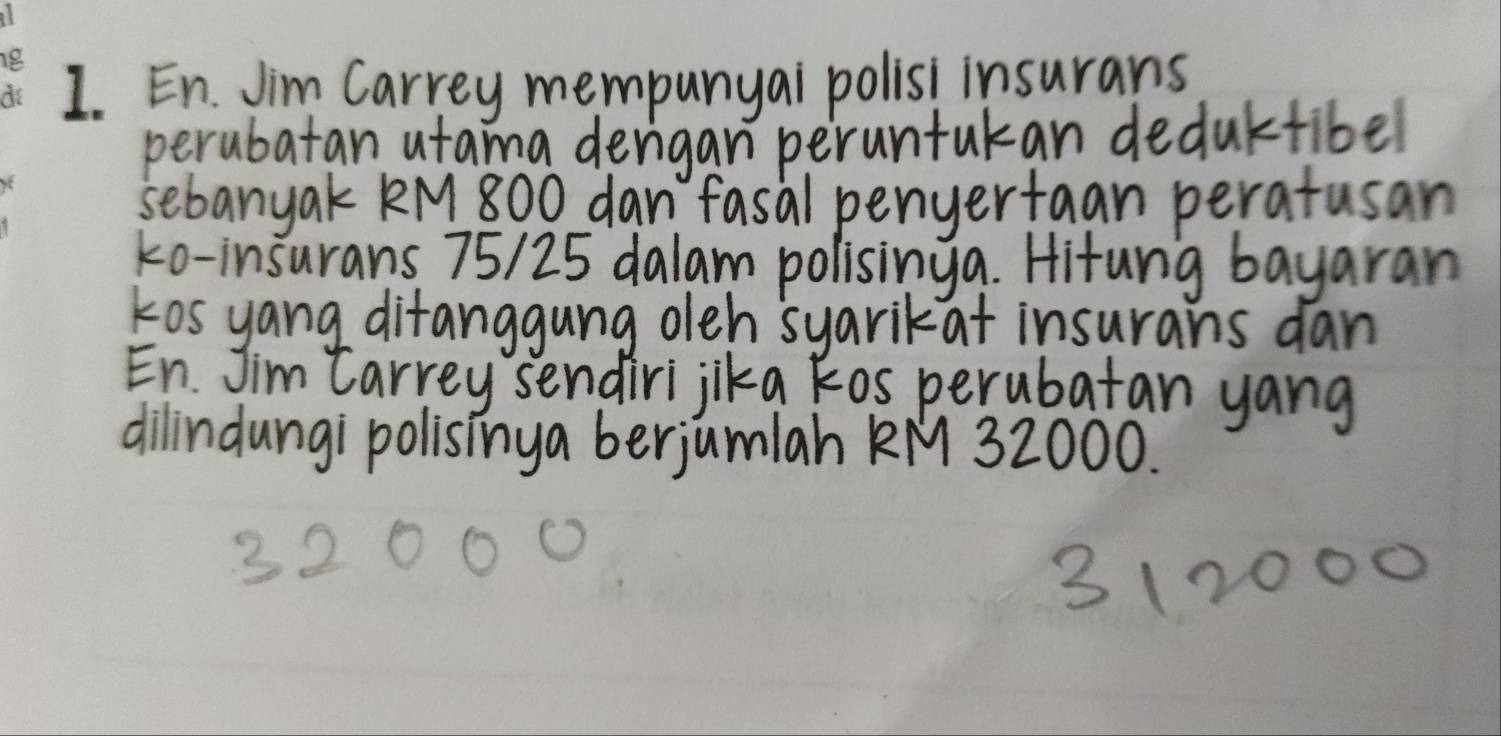 1. En. Jim Carrey mempunyai polisi insurans
perubatan utama dengan peruntukan deduktibel
sebanyak RM 800 dan fasal penyertaan peratusan
ko-insurans 75/25 dalam polisinya. Hitung bayaran
kos yang ditanggung oleh syarikat insurans dan
En. Jim Carrey sendiri jika kos perubatan yang
dilindungi polisinya berjumlah RM 32000.
32000
312000